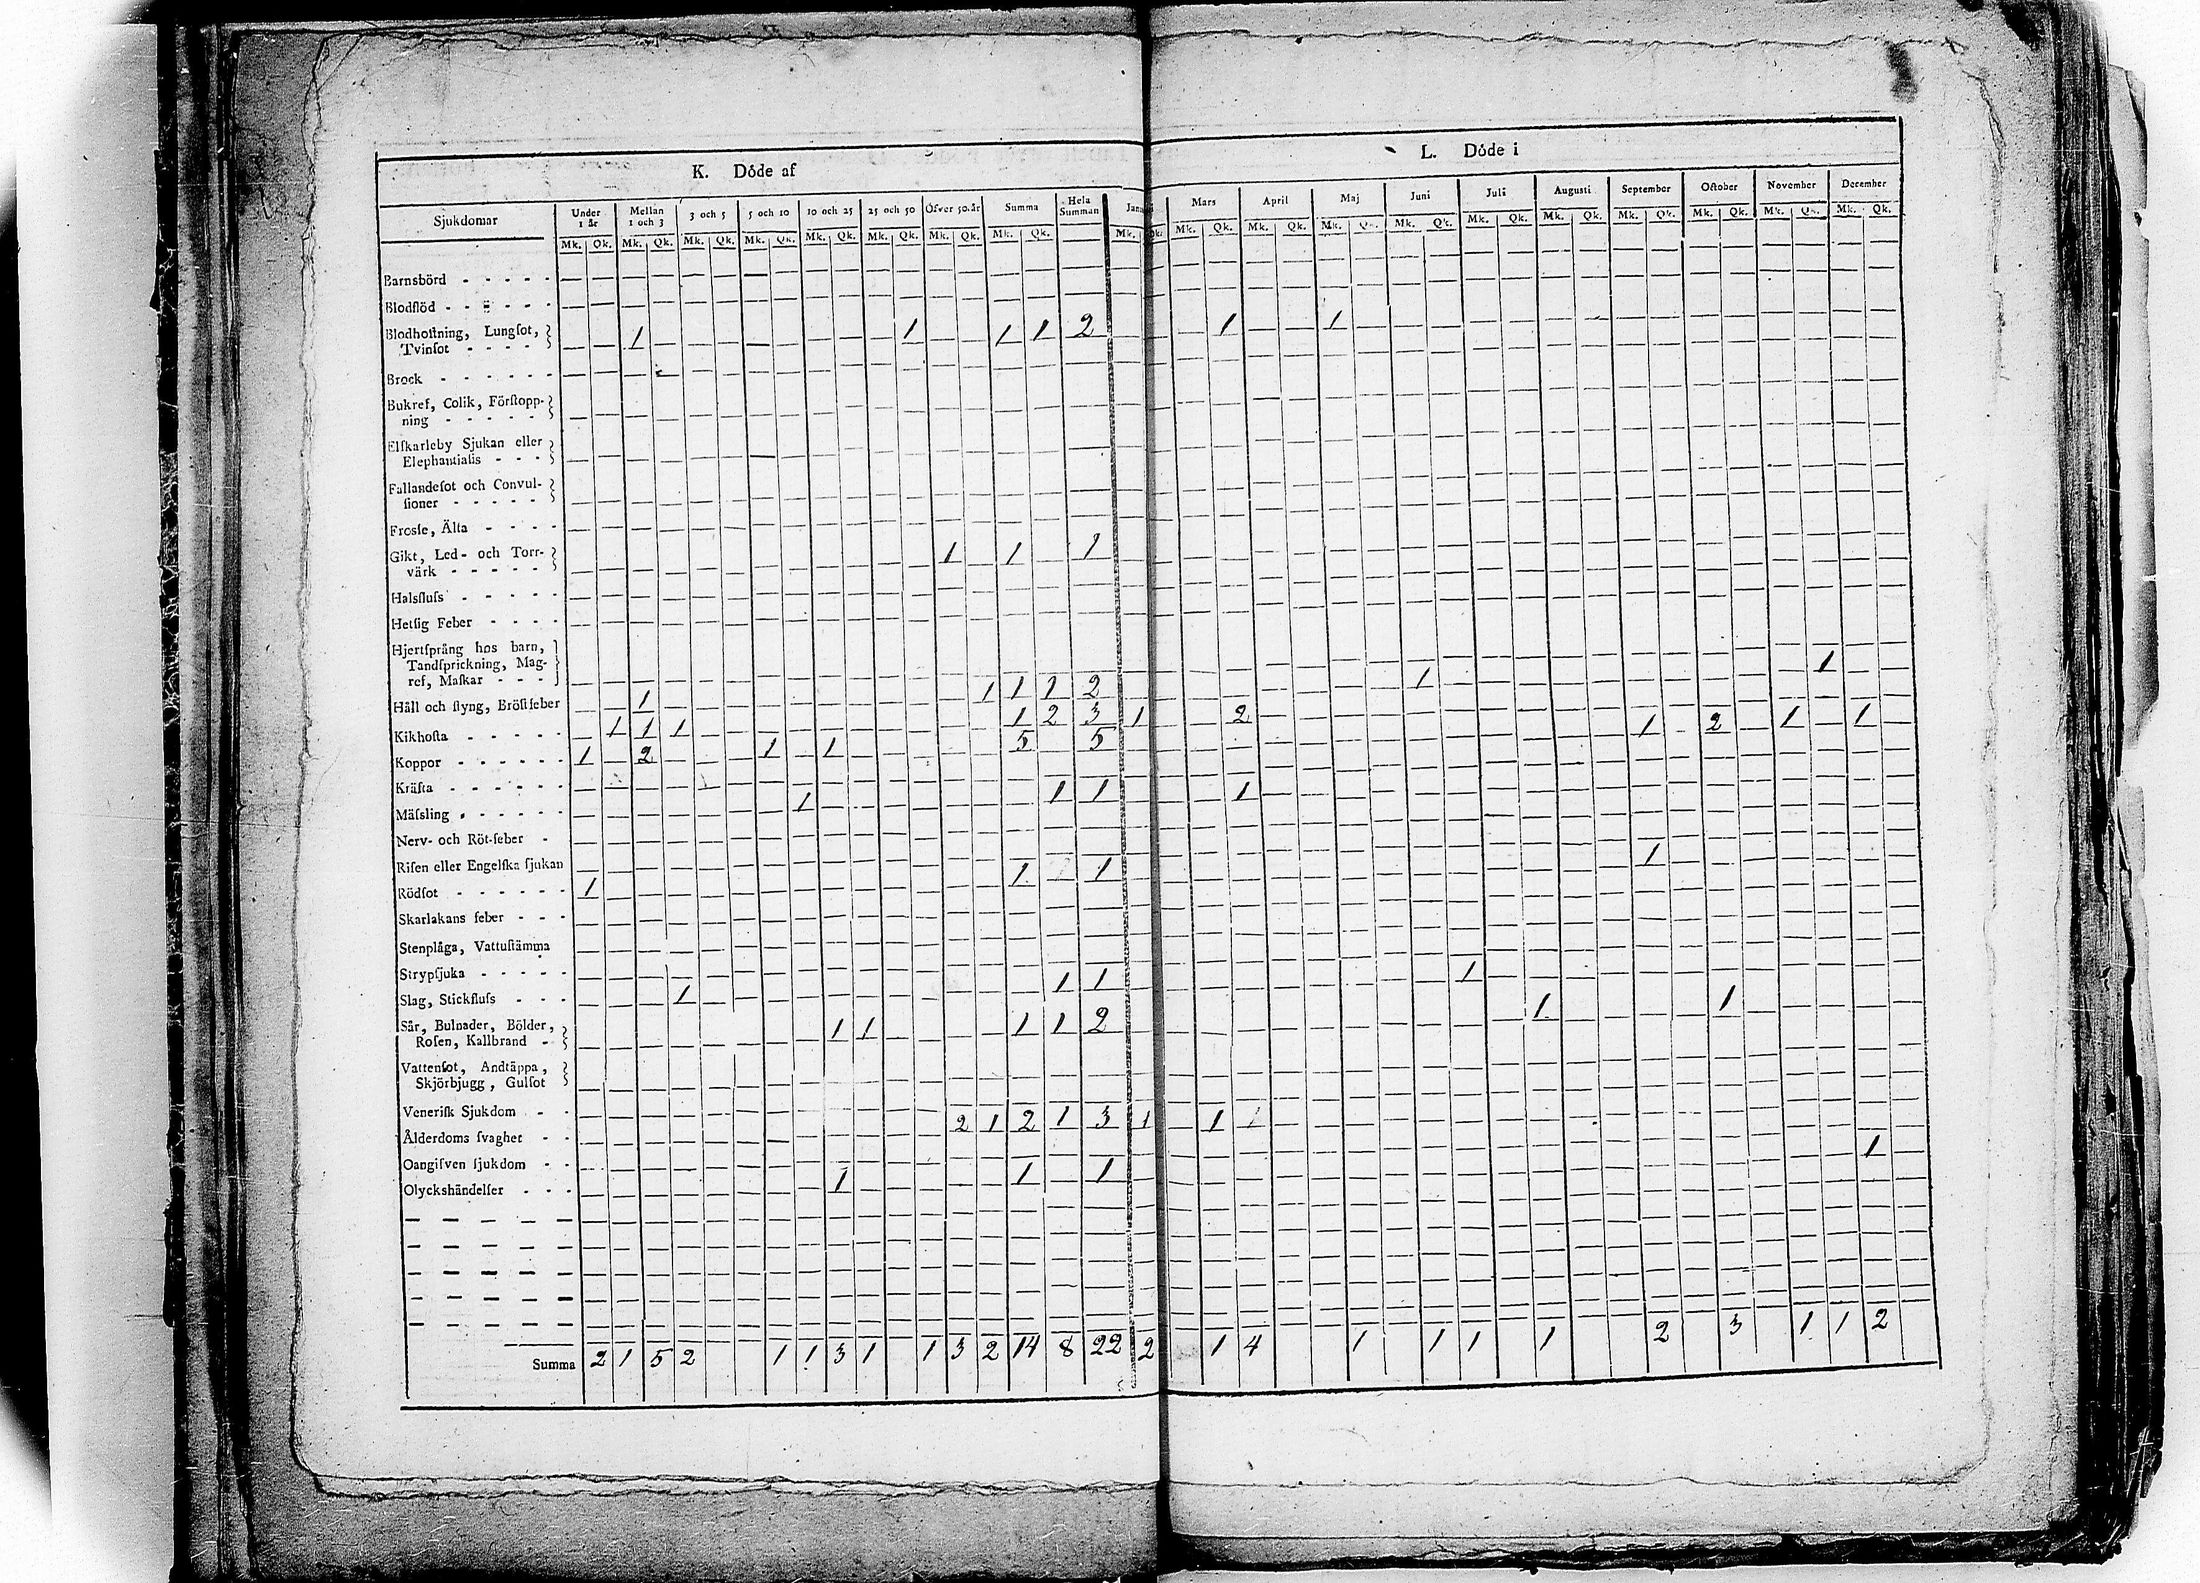 K. Döde af
L. Döde i
Sjukdomar Under 1 år Mellan 1 och 3 3 och 5 5 och 10 10 och 25 25 och 50 Öfver 50 år Summa Hela Summan Mars April Maj Juni Juli Augusti September October November December
Mk. Qk. Mk. Qk. Mk. Qk. Mk. Qk. Mk. Qk. Mk. Qk. Mk. Qk. Mk. Qk. Mk. Qk. Mk. Qk. Mk. Qk. Mk. Qk. Mk. Qk. Mk. Qk. Mk. Qk. Mk. Qk. Mk. Qk. Mk. Qk. Mk. Qk.
Barnsbörd
Blodflöd
Blodhoſtning, Lungſot, 1 1 1 1 2 1 1
Tvinſot
Brock
Bukref, Colik, Förſtopp-
ning
Elſkarleby Sjukan eller
Elephantiaſis
Fallandeſot och Convul-
ſioner
Frosſe, Älta
Gikt, Led- och Torr- 1 1 1
värk
Halsfluſs
Hetſig Feber
Hjertſprång hos barn,
Tandſprickning, Mag-
ref, Maſkar
Håll och ſtyng, Bröſtfeber 1 1 1 1 2 1 1
Kikhoſta 1 1 1 1 2 3 1 2
Koppor 1 2 1 1 5 5 1 2 1 1
Kräfta
Mäſsling 1 1 1 1
Nerv- och Röt-feber
Riſen eller Engelſka ſjukan
Rödſot 1 1 1 1
Skarlakans feber
Stenplåga, Vattuſtämma
Strypſjuka
Slag, Stickfluſs 1 1 1 1
Sår, Bulnader, Bölder, 1 1 1 1 2 1 1
Roſen, Kallbrand
Vattenſot, Andtäppa,
Skjörbjugg, Gulſot
Veneriſk Sjukdom
Ålderdoms ſvaghet 2 1 2 1 3 1 1 1
Oangifven ſjukdom
Olyckshändelſer 1 1 1 1
Summa 2 1 5 2 1 1 3 1 1 3 2 14 8 22 2 1 4 1 1 1 1 2 3 1 1 2